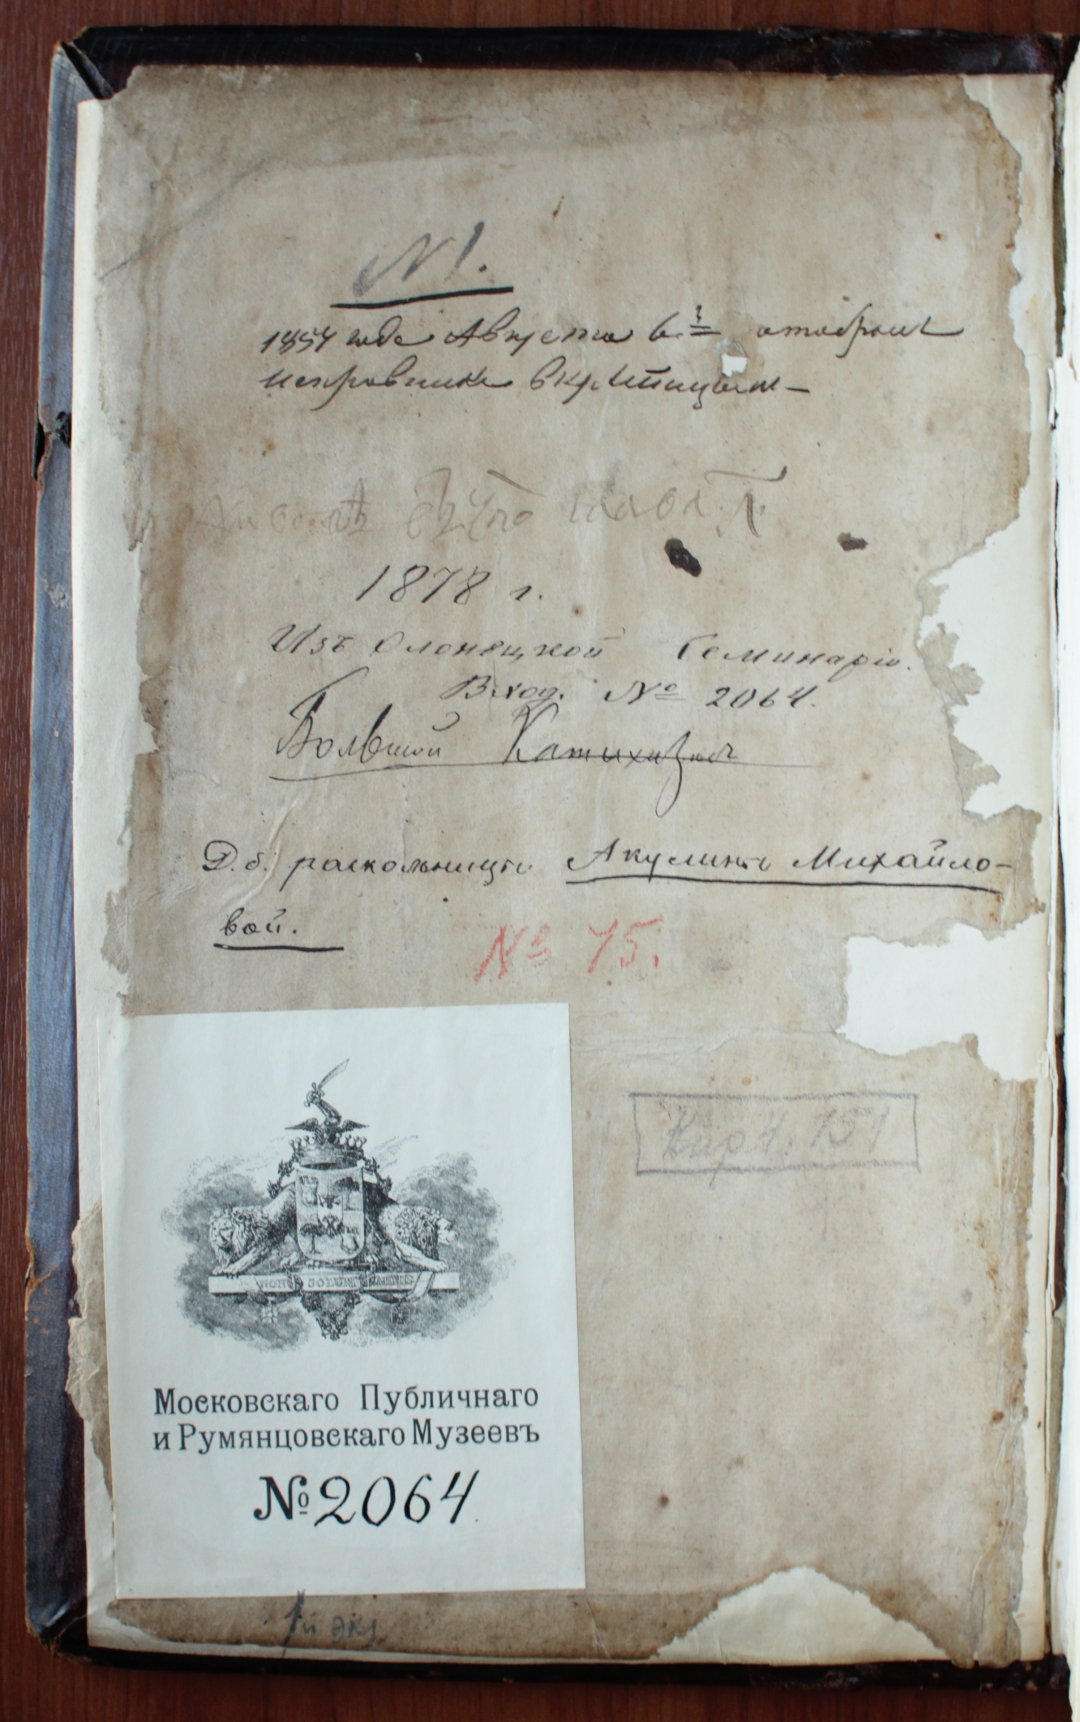 № 1.
1854 года Августа 3 отобрана
Исправником
1878 г.
Изъ Олонецкой Семинаріи.
Вход. № 2064.
Большой Катихизисъ
Д. б. раскольницы Акулины Михайло-
вой.
№ 75.
Кар. 151
Московскаго Публичнаго
и Румянцовскаго Музеевъ
№ 2064
1й экз